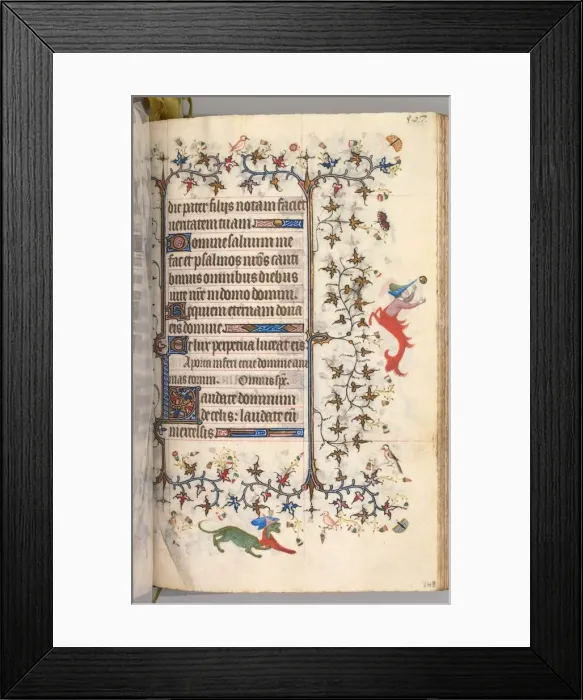 die pater filijs notam faciet
ueritatem tuam.
Domine saluum me
fac et psalmos nr̄os canti
bimus omnibus diebus
uite nr̄e in domo domini.
Requiem eternam dona
eis domine.
Et lux perpetua luceat eis
A porta inferi erue domine ani
mas eorum. Omnis sp̄c.
Laudate dominum
de celis: laudate eū
in excelsis
248